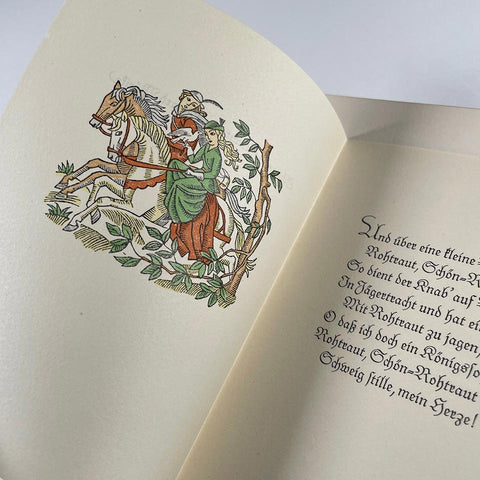 Und über eine kleine
Rohtraut, Schön-R
So dient der Knab' auf
In Jägertracht und hat ei
Mit Rohtraut zu jagen,
O daß ich doch ein Königsso
Rohtraut, Schön-Rohtraut
Schweig stille, mein Herze!